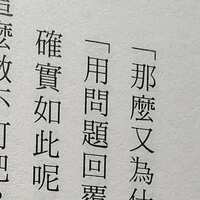 「那麼又為什
「用問題回覆
確實如此呢
這麼做不可吧？